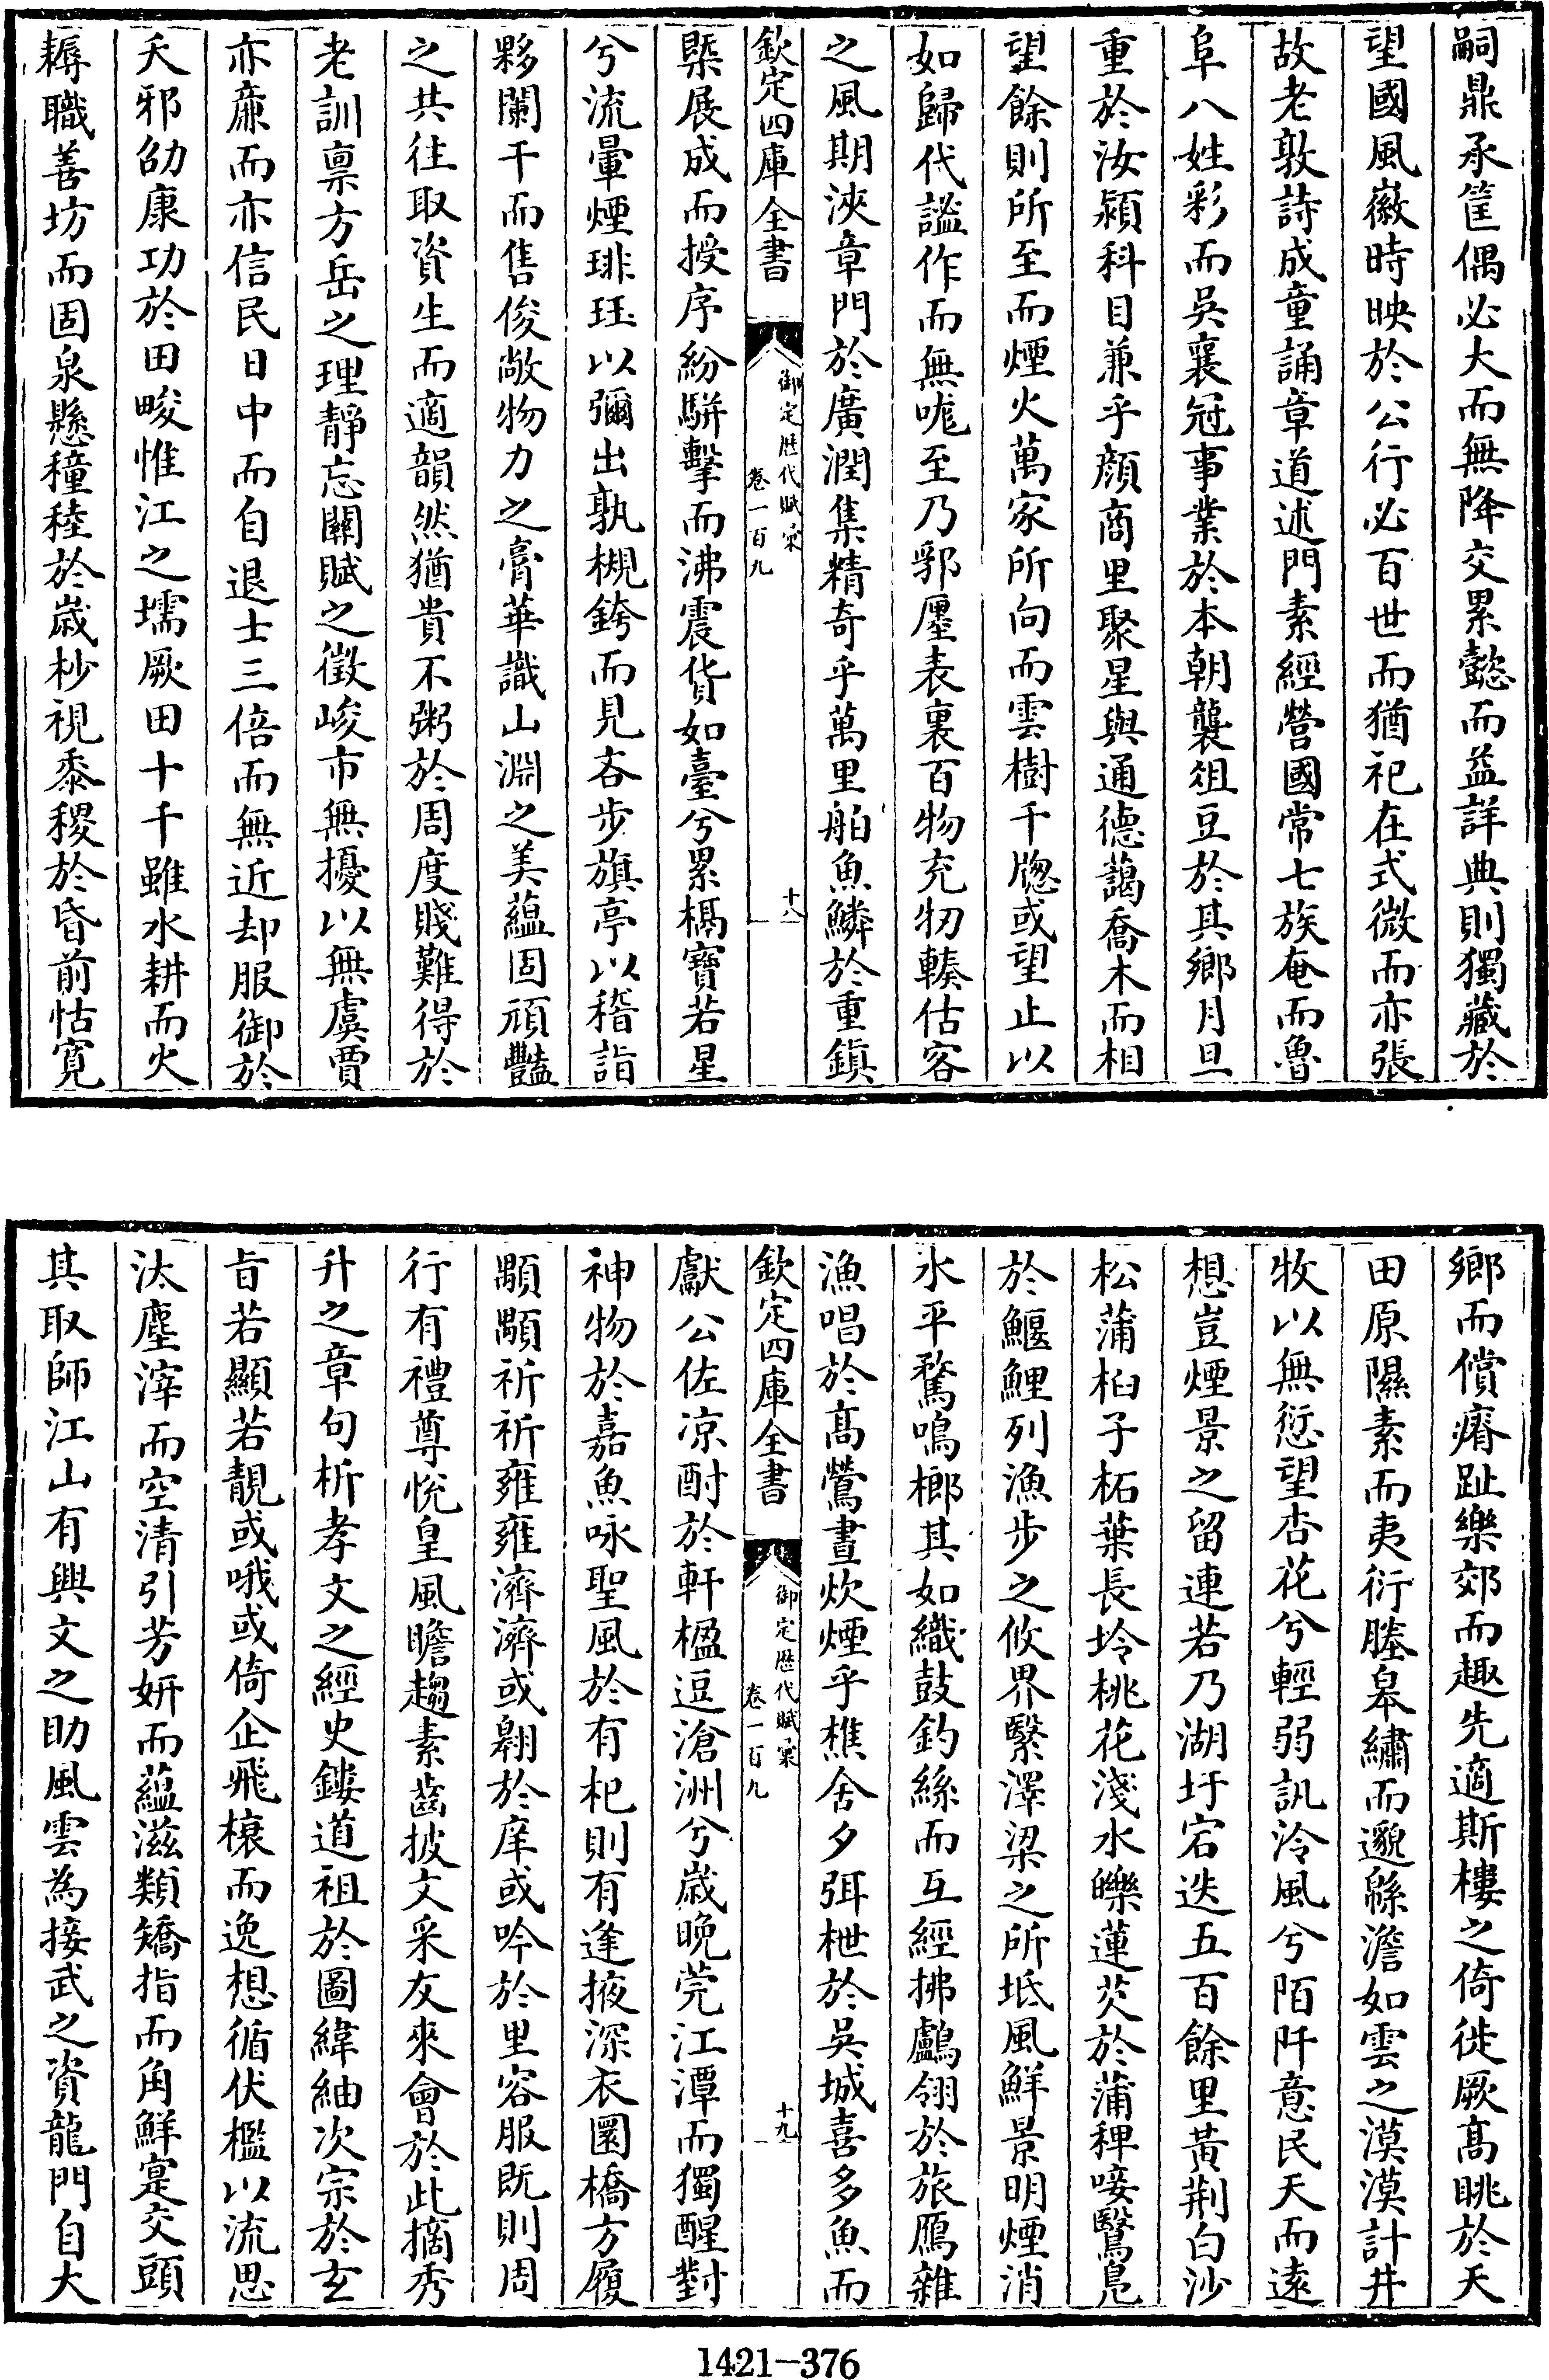 嗣鼎承筐偶必大而無降交累懿而益詳典則獨藏於
望國風徽時映於公行必百世而猶祀在式微而亦張
故老敦詩成童誦章道述門素經營國常七族奄而魯
阜八姓彩而吳襄冠事業於本朝襲俎豆於其鄉月旦
重於汝潁科目兼乎顔商里聚星與通德藹喬木而相
望餘則所至而煙火萬家所向而雲樹千牕或望止以
如歸代謐作而無哤至乃郛廛表裏百物充牣輳估客
之風期浹章門於廣潤集精奇乎萬里舶魚鱗於重鎮
欽定四庫全書
御定歴代賦彚
卷一百九
十八
㮣展成而授序紛駢擊而沸震貨如臺兮累榪寶若星
兮流暈煙琲珏以彌出孰槻銙而見吝步旗亭以稽詣
夥闌干而售俊敞物力之膏華識山淵之美藴固頑豔
之共往取資生而適韻然猶貴不粥於周度賤難得於
老訓禀方岳之理靜忘關賦之徵峻市無擾以無虞賈
亦亷而亦信民日中而自退士三倍而無近却服御於
夭邪劭康功於田畯惟江之壖厥田十千雖水耕而火
耨職善坊而固泉懸穜稑於嵗杪視黍稷於昏前怙寛
鄉而償瘠趾樂郊而趣先適斯樓之倚徙厥髙眺於天
田原隰素而夷衍塍皋繡而邈緜澹如雲之漠漠計井
牧以無愆望杏花兮輕弱訊泠風兮陌阡意民天而遠
想豈煙景之留連若乃湖圩宕迭五百餘里黃荆白沙
松蒲桕子柘葉長坽桃花淺水皪蓮芡於蒲稗唼鷖凫
於鰋鯉列漁步之攸界繫澤梁之所坻風鮮景明煙消
氷平鶩鳴榔其如織鼓釣絲而互經拂鸕翎於旅鴈雜
漁唱於髙鶯晝炊煙乎樵舍夕弭枻於吳城喜多魚而
欽定四庫全書
御定歴代賦彚
卷一百九
十九
獻公佐凉酎於軒楹逗滄洲兮嵗晚莞江潭而獨醒對
神物於嘉魚咏聖風於有杞則有逢掖深衣圜橋方履
顒顒祈祈雍雍濟濟或翱於庠或吟於里容服既則周
行有禮尊悅皇風瞻趨素齒披文采友來會於此摘秀
升之章句析孝文之經史鏤道祖於圖緯紬次宗於玄
旨若顯若靚或哦或倚企飛榱而逸想循伏檻以流思
汰塵滓而空清引芳妍而藴滋類矯指而角鮮寔交頭
其取師江山有興文之助風雲為接武之資龍門自大
1421-376